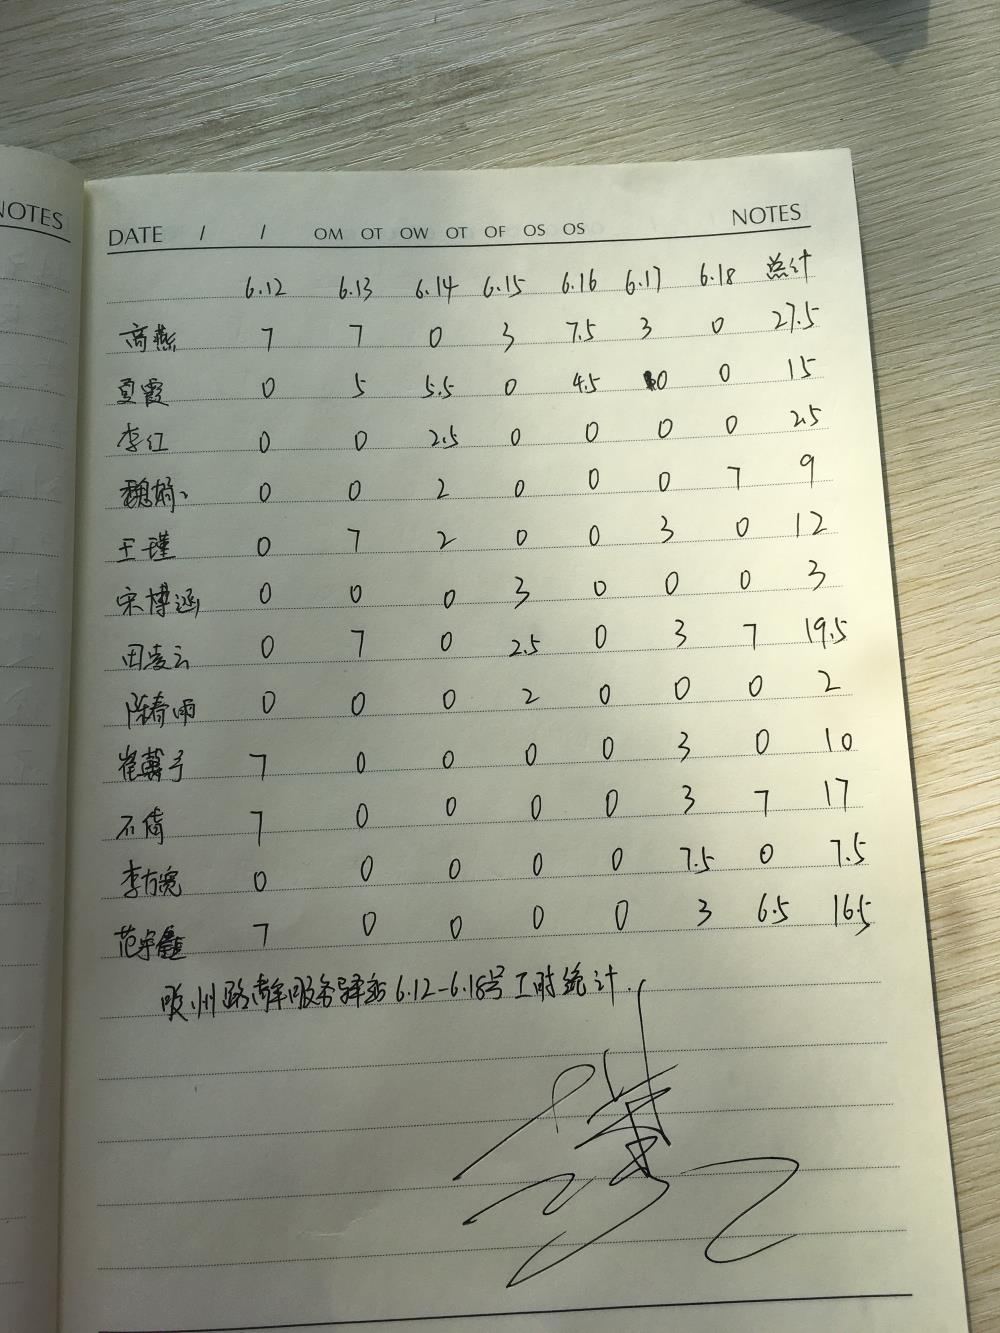 NOTES
DATE / / OM OT OW OT OF OS OS NOTES
6.12 6.13 6.14 6.15 6.16 6.17 6.18 总计
高燕 7 7 0 3 7.5 3 0 27.5
夏霞 0 5 5.5 0 4.5 0 0 15
李红 0 0 2.5 0 0 0 0 2.5
魏娟 0 0 2 0 0 0 7 9
王瑾 0 7 2 0 0 3 0 12
宋博涵 0 0 0 3 0 0 0 3
田凌云 0 7 0 2.5 0 3 7 19.5
陈春雨 0 0 0 2 0 0 0 2
崔 子 7 0 0 0 0 3 0 10
石倩 7 0 0 0 0 3 7 17
李方 0 0 0 0 0 7.5 0 7.5
范宇鑫 7 0 0 0 0 3 6.5 16.5
州路青年服务驿站6.12-6.18号工时统计.